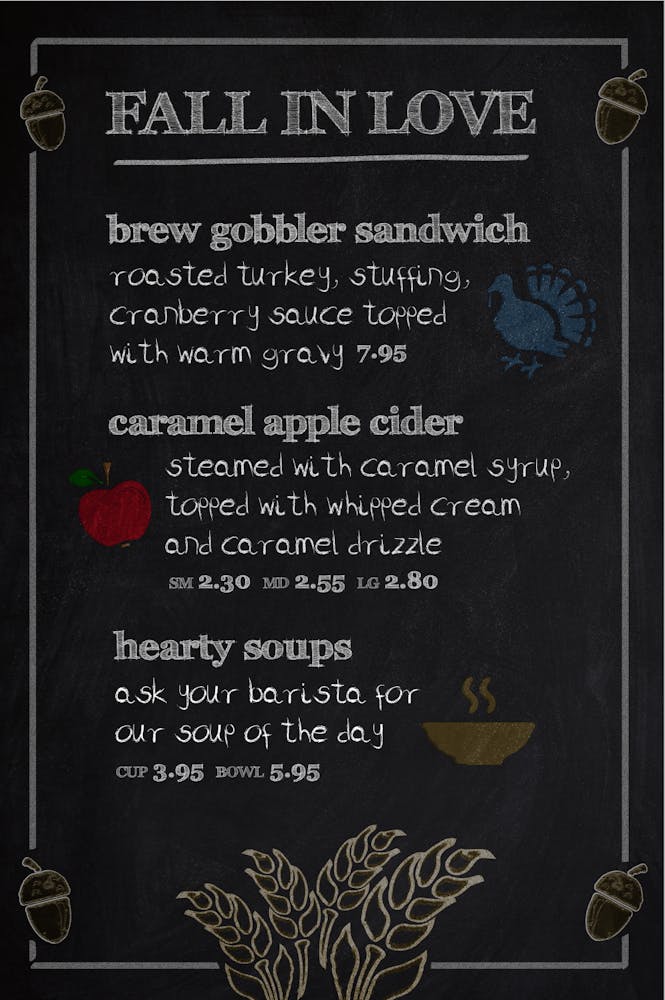 FALL IN LOVE
brew gobbler sandwich
roasted turkey, stuffing,
cranberry sauce topped
with warm gravy 7.95
caramel apple cider
steamed with caramel syrup,
topped with whipped cream
and caramel drizzle
SM 2.30 MD 2.55 LG 2.80
hearty soups
ask your barista for
our soup of the day
CUP 3.95 BOWL 5.95